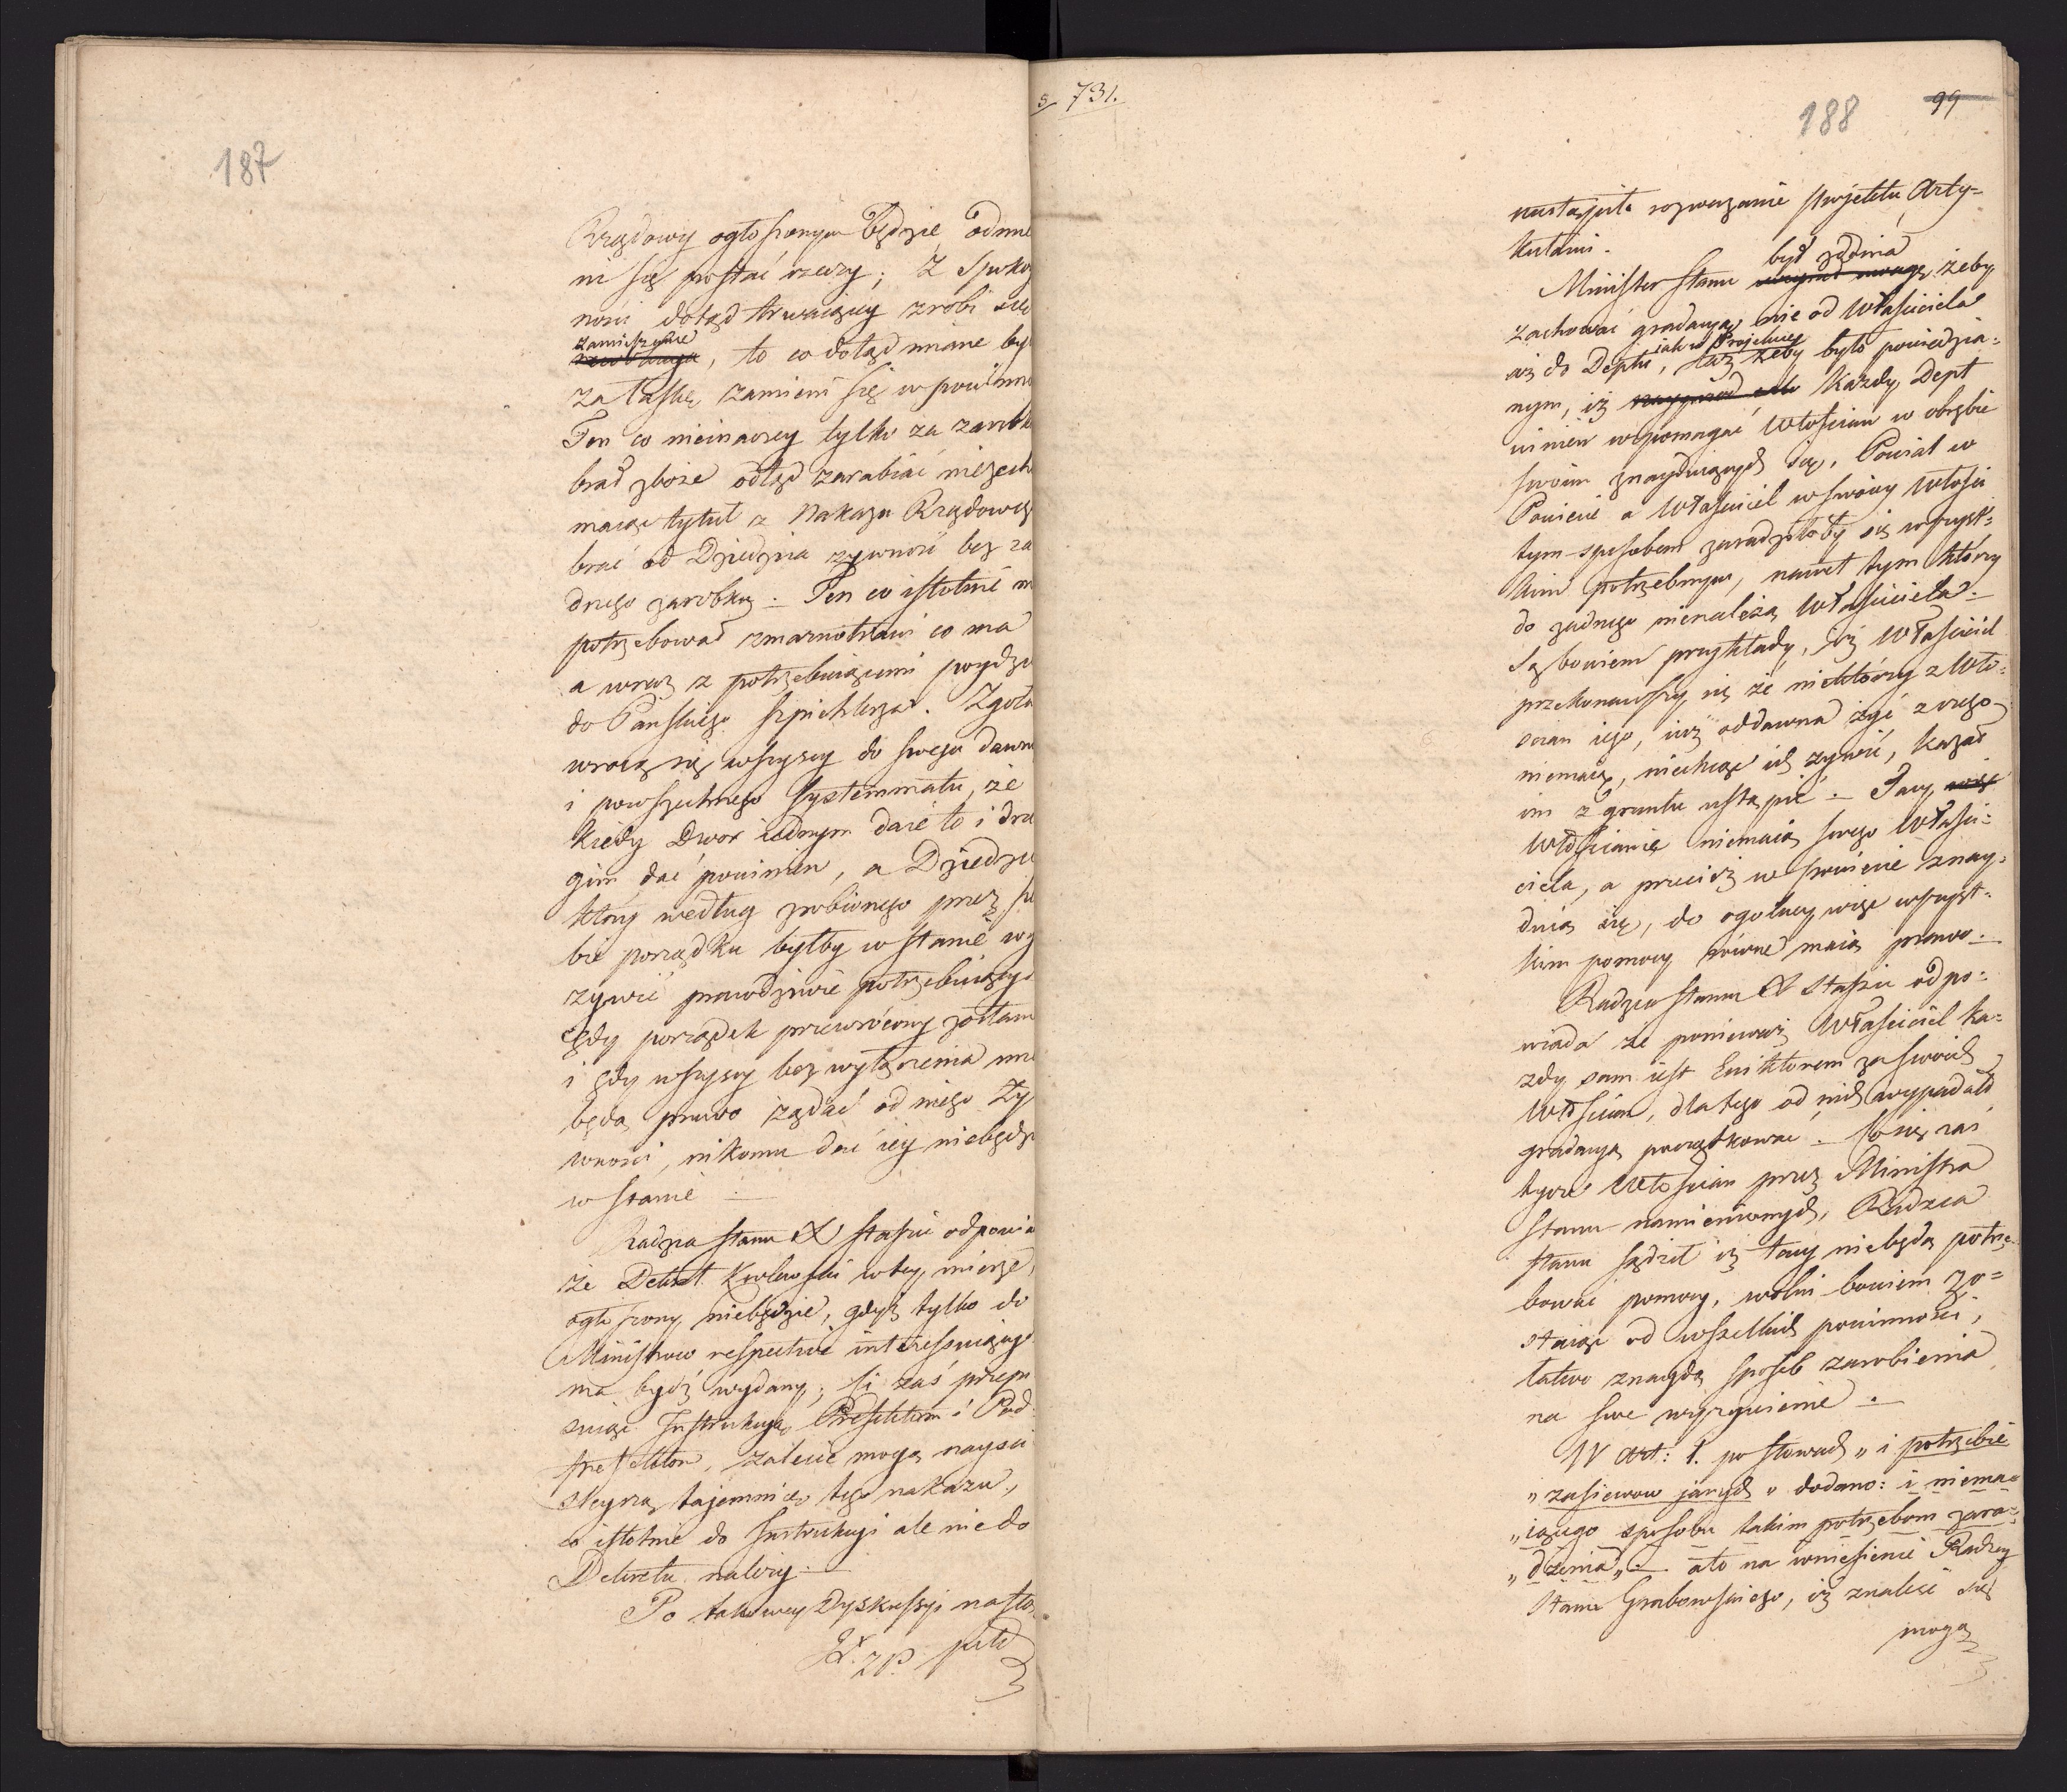 187
Rządowy ogłoszonym będzie, odmie
ni się postać rzeczy; Z Spokoy
ności dotąd trwaiącey zrobi się
zamieszanie
, to co dotąd miane by
za łaskę zamieni się w powinno
Ten co nieinaczey tylko za zarobk
brał zboże odtąd zarabiać niezech
maiąc tytuł z Nakazu Rządowego
brać od Dziedzica żywność bez ża
dnego zarobku. Ten co istotnie n
potrzebował zmarnotrawi co ma
a wraz z potrzebuiącemi poydzie
do Pańskiego Szpichlerza. Zgoła
wrócą się wszyscy do swego dawn
i powszechnego systemmatu, że
kiedy Dwor iednym daie to i dru
gim dać powinien, a Dziedzic
który według zrobionego przez sie
bie porządku byłby w stanie wy
żywić prawdziwie potrzebuiących
gdy porządek przewrócony zostan
i gdy wszyscy bez wyłączenia mie
będą prawo żądać od niego Ży-
wności, nikomu dać iey niebędzie
w stanie —
Radzca Stanu X Staszic odpowia
że Dekret Krolewski w tey mierze,
ogłoszony niebędzie, gdyż tylko do
Ministrow respective interessuiącyc
ma bydź wydany; Ci zaś przepi
suiąc Instrukcyą Prefektom i Pod-
prefektom, zalecić mogą nayści
śleyszą tajemnicę tego nakazu,
co istotnie do Instrukcyi ale nie do
Dekretu należy. —
Po takowey Dyskussyi nastą
piło
s 731.
188
99
nastąpiło rozważanie projektu Arty-
kułami.
był zdania
Minister Stanu wczynił uwagę, żeby
zachować gradacyą, nie od Właściciela
iak w Projekcie
aż do Deptu, lecz żeby było powiedzia-
nym, iż każdy Dept
winien wspomagać Włościan w obrębie
swoim znayduiących się, Powiat w
Powiecie a Właściciel w swoiey Włości
tym sposobem zaradziłoby się wszyst-
kim potrzebnym, nawet tym którzy
do żadnego nienależą Właściciela. —
Są bowiem przykłady, iż Właściciel
przekonawszy się że niektórzy z Wło-
ścian iego, iuż oddawna żyć z czego
niemaią, niechcąc ich żywić, kazał
im z gruntu ustąpić. — Tacy więc
Włościanie niemaią swego Właści-
ciela, a przecież w Powiecie znay-
duią się, do ogolney więc wszyst-
kim pomocy rowne maią prawo. —
Radzca Stanu X Staszic odpo-
wiada że ponieważ Właściciel ka-
żdy sam iest Ewiktorem za swoich
Włościan, dlatego od nich wypadało
gradacyą początkować. — Co się zaś
tycze Włościan przez Ministra
Stanu namienionych, Radzca
Stanu sądził iż tacy niebędą potrze
bować pomocy, wolni bowiem zo-
staiąc od wszelkich powinności,
łatwo znaydą sposob zarobienia
na swe wyżywienie. —
W Art: 1. po słowach „ i potrzebie
„ zasiewow jarych „ dodano: i niema-
„iącego sposobu takim potrzebom zara-
„dzenia„. — a to na wniesienie Radzcy
Stanu Grabowskiego, iż znaleść się
mogą